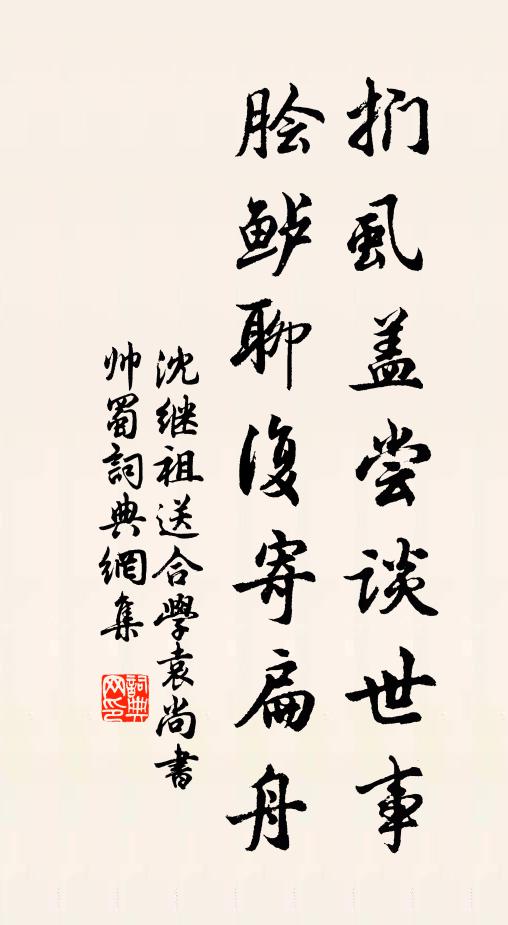 扪虱盖尝谈世事
脍鲈聊复寄扁舟
沈继祖送合學袁尚書
帅蜀詞典網集
詞典网印